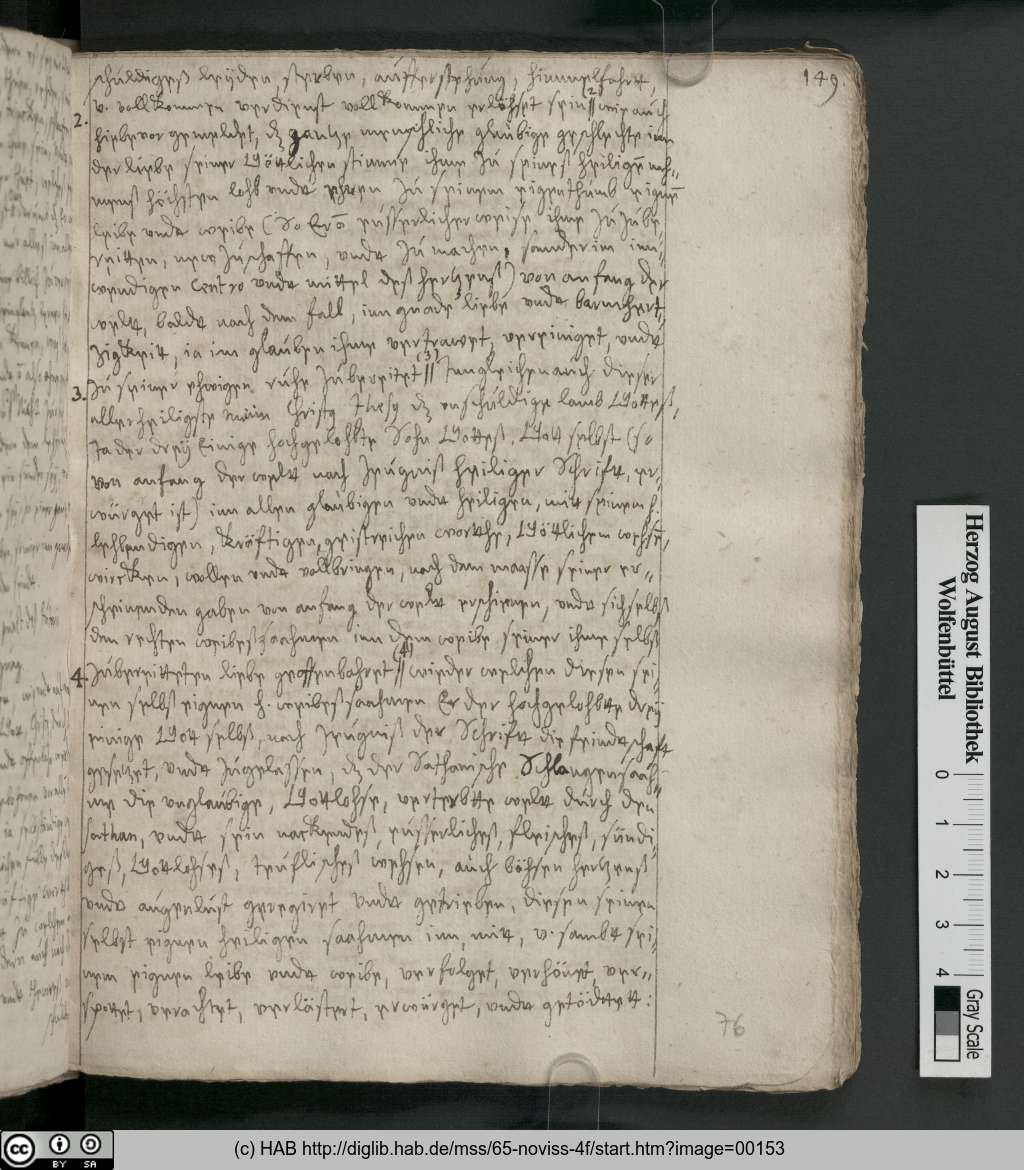 149.
schuldigeß leÿden, sterben, aufferstehung, himmelfahrt,
v. vollkommen verdienst vollkommen erlöhset sein (2)// wie auch
2. hiebevor gemeldet, dz gantze menschliche glaubige geschlecht inn
der liebe seiner Göttlichen stimme ihme zu seineß heiligen nah-
menß höchsten lohb undt ehren zu seinem eigenthumb eigenen
leibe undt weibe (So Er eusserlicher weise ihme zu zube,
reitten, new zuschaffen, undt zu machen, sondern im inn-
wendigen Centro undt mittel deß hertzenß) von anfang der
welt, baldt nach dem fall, inn gnade liebe undt barmhert,
zigkeit, ia im glauben ihme vertrawet, vereiniget, undt
zu seiner ehwigen ruhe zubereitet (3)// Inngleichen auch dieser
3. allerheiligste nam Christy Jhesy dz unschuldige lamb Gotteß,
Ja der dreÿ Einige hochgelohbte Sohn Gotteß. Gott selbst (so
von anfang der welt nach Zeugniß heiliger Schrift, er-
würget ist) inn allen glaubigen undt heiligen, mit seinem h.
lehbendigen, kräftigen, geistreichen worthe, Göttlichem wehsen,
wirkken, wollen undt vollbringen, nach dem maasse seiner er-
scheinenden gaben von anfang der welt erschienen, undt sich selbst
den rechten weibeß saahmen inn dem weibe seiner ihme selbst
4. zubereitteten liebe geoffenbahret (4)// wieder welchen diesen sei-
nen selbst eigenen h. weibeß saahmen Er der hochgelohbte dreÿ
einige Gott selbst, nach Zeugniß der Schrift die feindtschaft
gesetzet, undt zugelassen, dz der Sathanische Schlangensaah-
me die unglaubige, Gottlohse, verterbtte welt durch den
sathan, undt sein nackkendeß, eusserlicheß, fleischeß, sündi,
geß, Gottlohseß, teuflischeß wehsen, auch böhsen hertzenß
undt augenlust geregiret undt getrieben, diesen seinen
selbst eigenen heiligen saahmen inn, mit, v. sambt sei-
nem eigenen leibe undt weibe, verfolget, verhönet, ver-
spottet, verachtet, verlästert, erwürget, undt getödtett:
76
Herzog August Bibliothek
Wolfenbüttel
0 1 2 3 4
Gray Scale
cc BY SA
(c) HAB http://diglib.hab.de/mss/65-noviss-4f/start.htm?image=00153